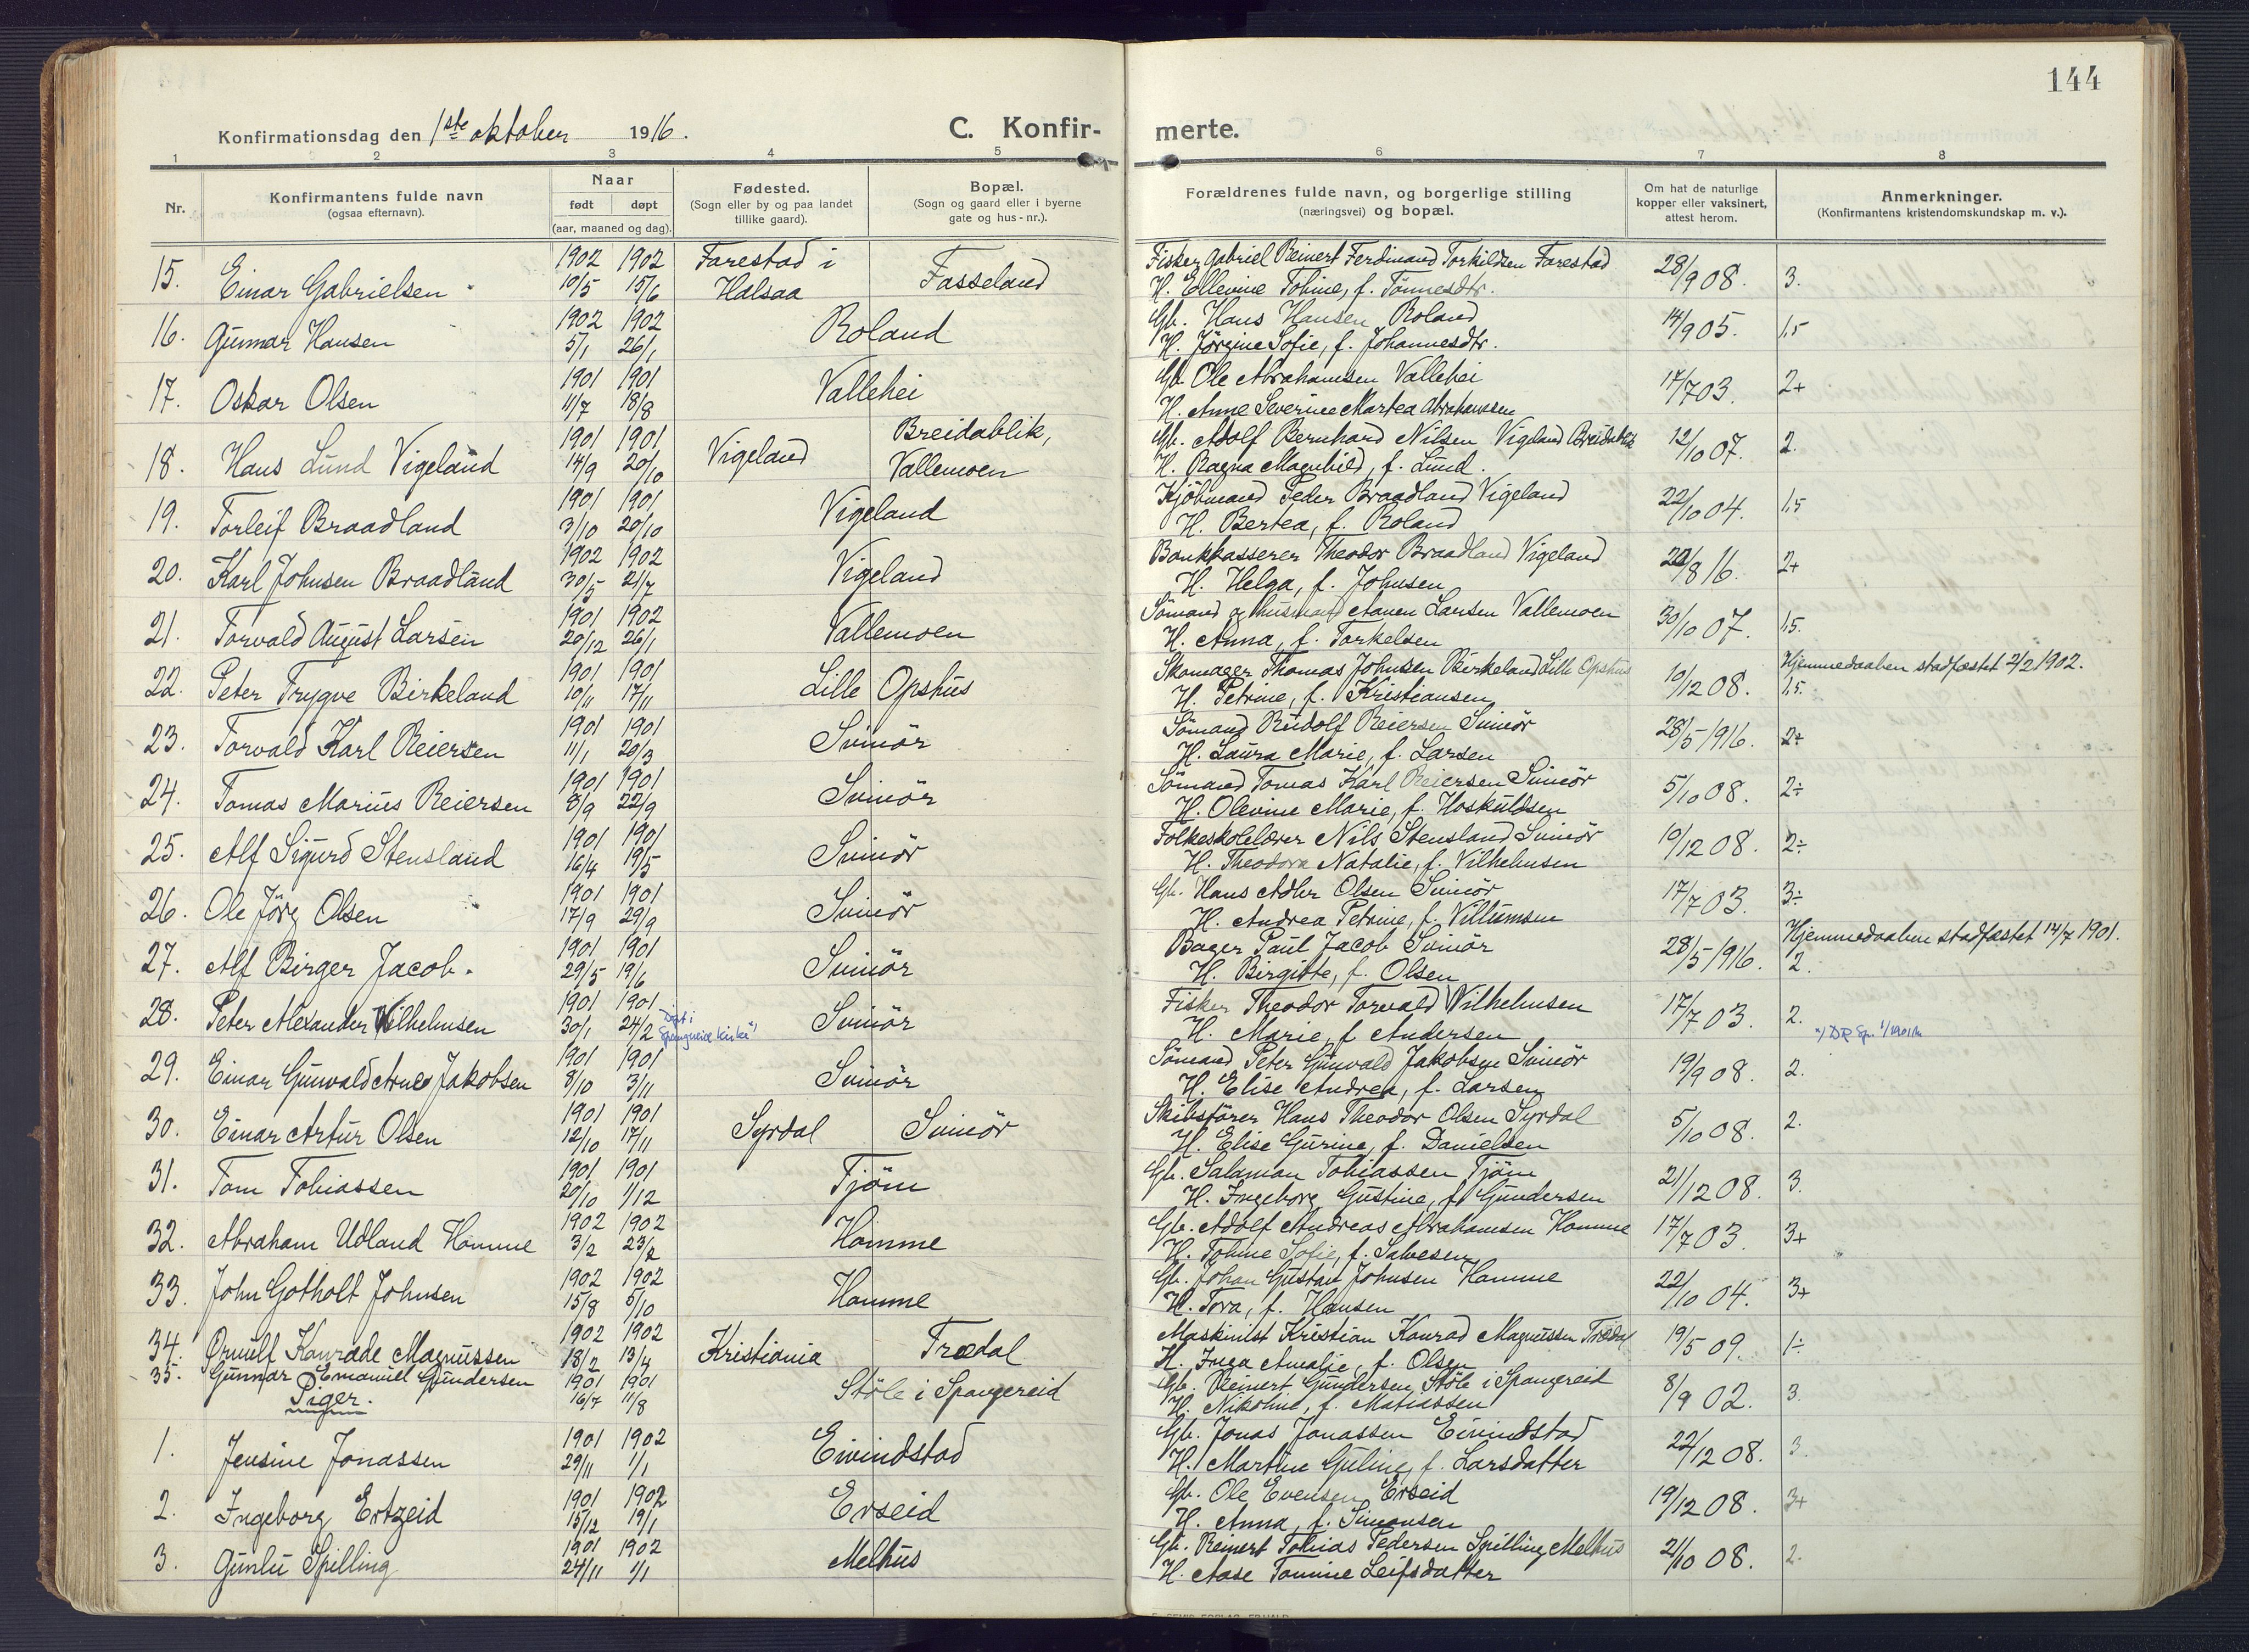 144
Konfirmationsdag den 1ste oktober 1916.
C. Konfir- merte.
1 2 3 4 5 6 7 8
Nr.
Konfirmantens fulde navn
(ogsaa efternavn).
Naar
født døpt
(aar, maaned og dag).
Fødested.
(Sogn eller by og paa landet
tillike gaard).
Bopæl.
(Sogn og gaard eller i byerne
gate og hus-nr.).
Forældrenes fulde navn, og borgerlige stilling
(næringsvei) og bopæl.
Om hat de naturlige
kopper eller vaksinert,
attest herom.
Anmerkninger.
(Konfirmantens kristendomskundskap m. v.).
1902 1902 Farestad i Fisker Gabriel Reinert Ferdinand Torkildsen Farestad
15. Einar Gabrielsen 10/5 15/6 Halsaa Fasseland H. Ellevine Tobine, f. Tønnesdtr. 28/9 08. 3.
1902 1902 Gb. Hans Hansen Roland
16. Gunnar Hansen 5/1 26/1 Roland H. Jörgine Sofie, f. Johannesdtr. 14/9 05. 1,5
1901 1901 Gb. Ole Abrahamsen Vallehei
17. Oskar Olsen 11/7 18/8 Vallehei H. Anne Severine Martea Abrahamsen 17/7 03. 2+
1901 1901 Breidablik, Gb. Adolf Bernhard Nilsen Vigeland Breidablik
18. Hans Lund Vigeland 14/9 20/10 Vigeland Vallemoen H. Ragna Magnhild, f. Lund. 12/10 07. 2.
1901 1901 Kjöbmand Peder Braadland Vigeland
19. Torleif Braadland 3/10 20/10 Vigeland H. Bertea, f. Roland 22/10 04. 1,5
1902 1902 Bankkasserer Theodor Braadland Vigeland
20. Karl Johnsen Braadland 30/5 21/7 Vigeland H. Helga, f. Johnsen /8 16. 2+
1901 1902 Sömand og husmand Aanen Larsen Vallemoen
21. Torvald August Larsen 20/12 26/1 Vallemoen H. Anna, f. Torkelsen 30/10 07. 1,5.
1901 1901 Skomager Thomas Johnsen Birkeland Lille Opshus Hjemmedaaben stadfæstet 2/2 1902.
22. Peter Trygve Birkeland 10/11 17/11 Lille Opshus H. Petrine, f. Kristiansen 10/12 08. 1,5.
1901 1901 Sömand Rudolf Reiersen Svinör
23. Torvald Karl Reiersen 11/1 20/3 Svinör H. Laura Marie, f. Larsen 28/5 1916. 2+
1901 1901 Sömand Tomas Karl Reiersen Svinör
24. Tomas Marius Reiersen 8/9 22/9 Svinör H. Olevine Marie, f. Hoskuldsen 5/10 08. 2÷
1901 1901 Folkeskolelærer Nils Stensland Svinör
25. Alf Sigurd Stensland 16/4 19/5 Svinör H. Theodora Natalie, f. Vilhelmsen 10/12 08. 2÷
1901 1901 Gb. Hans Adler Olsen Svinör
26. Ole Jörg Olsen 17/9 29/9 Svinör H. Andrea Petrine, f. Villumsen 17/7 03. 3÷
1901 1901 Bager Paul Jacob Svinör Hjemmedaaben stadfæstet 14/7 1901.
27. Alf Birger Jacob. 29/5 19/6 Svinör H. Birgitte, f. Olsen 28/5 1916. 2.
1901 1901 Fisker Theodor Torvald Vilhelmsen
28. Peter Alexander Vilhelmsen 30/1 24/2 Døpt i Spangereid kirke Svinör H. Marie, f. Andersen 17/7 03. 2.
1901 1901 Sömand Peter Gunvald Jakobsen Svinör
29. Einar Gunvald Arne Jakobsen 8/10 3/11 Svinör H. Elise Andrea, f. Larsen 19/9 08. 2.
1901 1901 Skibsförer Hans Theodor Olsen Syrdal
30. Einar Artur Olsen 12/10 17/11 Syrdal Svinör H. Elise Gurine, f. Danielsen 5/10 08. 2.
1901 1901 Gb. Salamon Tobiassen Tjöm
31. Tom Tobiassen 20/10 1/12 Tjöm H. Ingeborg Gustine, f. Gundersen 21/12 08. 3.
1902 1902 Gb. Adolf Andreas Abrahamsen Homme
32. Abraham Udland Homme 3/2 23/2 Homme H. Tobine Sofie, f. Salvesen 17/7 03. 3+
1902 1902 Gb. Johan Gustav Johnsen Homme
33. John Gotholt Johnsen 15/8 5/10 Homme H. Tora, f. Hansen 22/10 04. 3+
1902 1902 Maskinist Kristian Konrad Magnussen Trædal
34. Ørnulf Konrade Magnussen 18/2 13/4 Kristiania Trædal H. Inga Amalie, f. Olsen 19/5 09. 1÷
35. Gunnar Emanuel Gundersen 1901 1901 Gb. Reinert Gundersen, Stöle i Spangereid
16/7 11/8 Stöle i Spangereid H. Nikoline, f. Matiassen 8/9 02. 3.
Piger.
1901 1902 Gb. Jonas Jonassen Eivindstad
1. Jensine Jonassen 29/11 1/1 Eivindstad H. Martine Guline, f. Larsdatter 22/12 08. 3.
1901 1902 Gb. Ole Evensen Erseid
2. Ingeborg Ertzeid 15/12 19/1 Erseid H. Anna, f. Simonsen 19/12 08. 3+
1901 1902 Gb. Reinert Tobias Pedersen Spilling Melhus
3. Gunlu Spilling 24/11 1/1 Melhus H. Aase Tomine Leifsdatter 2/10 08. 2.